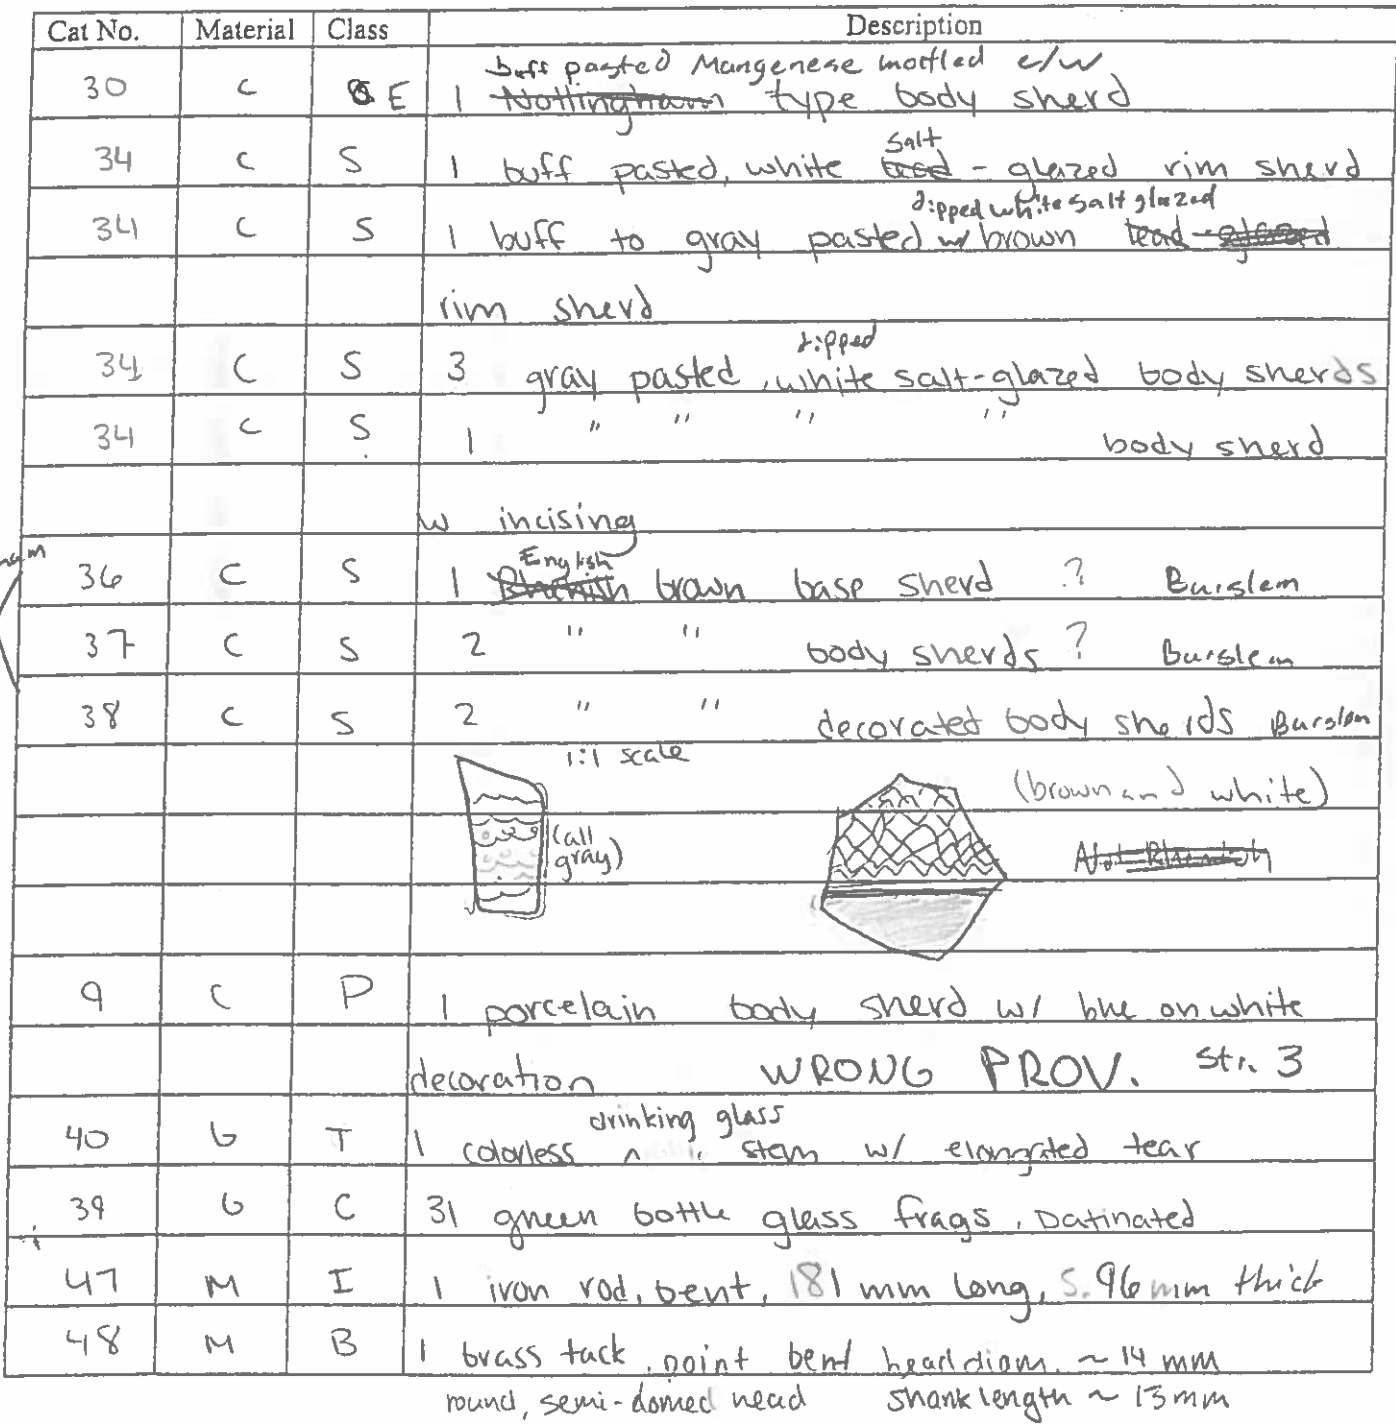 Cat No. Material Class Description
buff pasted Mangenese mottled e/w
30 C E 1 Nottingham type body sherd
salt
34 C S 1 buff pasted, white lead - glazed rim sherd
dipped white salt glazed
34 C S 1 buff to gray pasted w/ brown lead - glazed
rim sherd
dipped
34 C S 3 gray pasted, white salt-glazed body sherds
34 C S 1 " " " " body sherd
w incising
English
36 C S 1 Rhenish brown base sherd ? Burslem
37 C S 2 " " body sherds ? Burslem
38 C S 2 " " decorated body sherds Burslem
1:1 scale
(brown and white)
(all
gray)
Not Rhenish
9 C P 1 porcelain body sherd w/ blue on white
decoration WRONG PROV. Str. 3
drinking glass
40 G T 1 colorless ^ stem w/ elongated tear
39 G C 31 green bottle glass frags, patinated
47 M I 1 iron rod, bent, 181 mm long, 5.96 mm thick
48 M B 1 brass tack, point bent head diam. ~ 14 mm
round, semi-domed head shank length ~ 13 mm